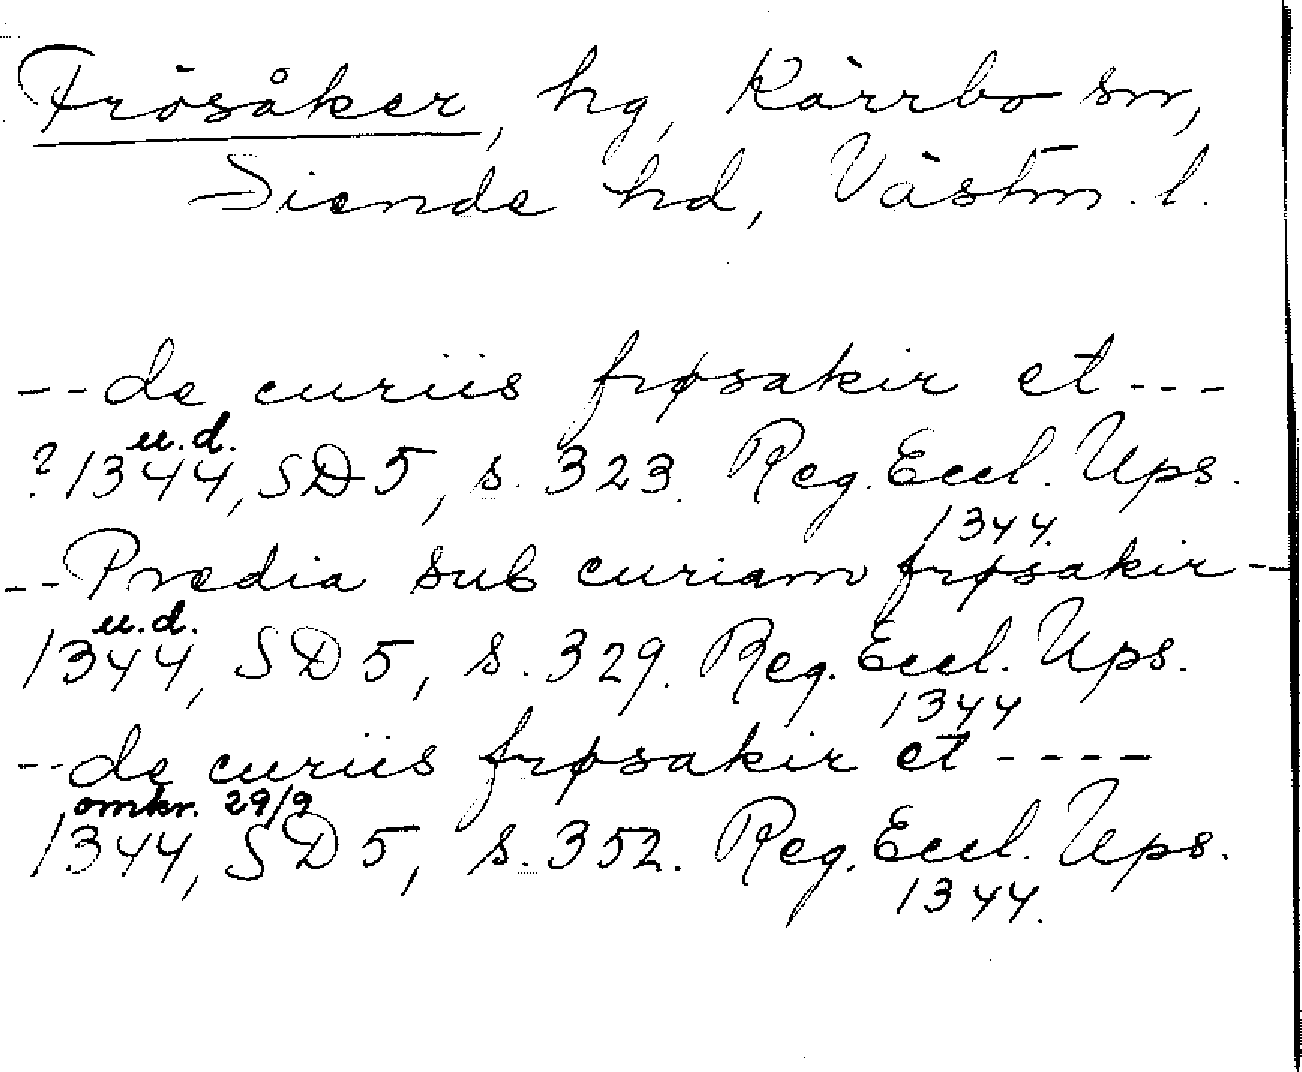 Frösåker, hg, Kärrbo sn,
Siende hd, Västm. l.
-- de curiis frøsakir et ---
u.d.
? 1344, SD 5, s. 323. Reg. Eccl. Ups.
1344.
-- Prædia sub curiam frøsakir --
u.d.
1344, SD 5, s. 329. Reg. Eccl. Ups.
1344
-- de curiis frøsakir et ----
omkr. 29/9
1344, SD 5, s. 352. Reg. Eccl. Ups.
1344.